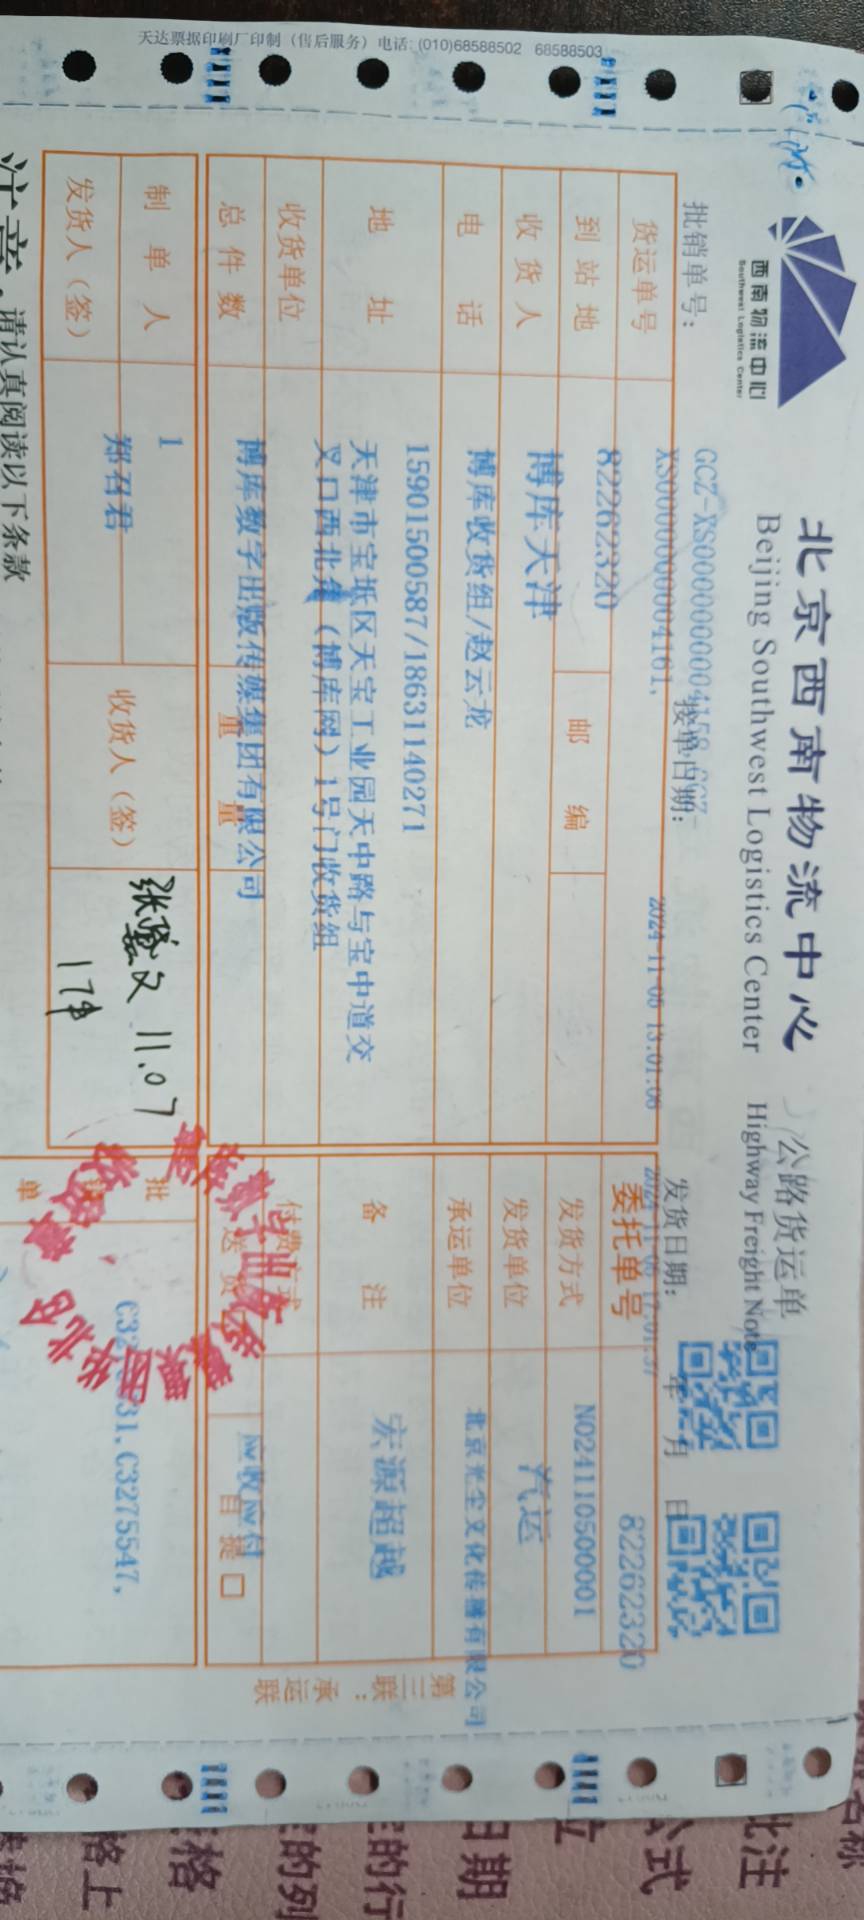 天达票据印刷厂印制（售后服务）电话: (010)68588502 68588503
西南物流中心
Southwest Logistics Center
北京西南物流中心
公路货运单
Beijing Southwest Logistics Center
Highway Freight Note
批销单号：
GCZ-XS0000000004158
XS0000000004161,
接单日期：
2024-11-05 13:01:06
发货日期：
年 月 日
货运单号
82262320
委托单号
82262320
到站地
博库天津
邮 编
发货方式
N02411050001
汽运
收货人
博库收货组/赵云龙
发货单位
北京光尘文化传播有限公司
电 话
15901500587/18631140271
承运单位
宏源超越
地 址
天津市宝坻区天宝工业园天中路与宝中道交
叉口西北角（博库网）1号门收货组
备 注
收货单位
博库数字出版传媒集团有限公司
付费方式
应收应付
总件数
1
重 量
送 货
自 提 □
制单人
郑召君
收货人（签）
11.07
17件
发货人（签）
批
单
C3275547,
第三联：承运联
注意：请认真阅读以下条款
批注
公式
位
日期
定的行
定的列
格
格上